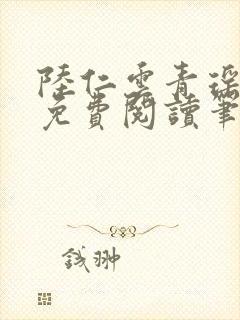 陸仁雲青瑤
免費閱讀筆
錢翀